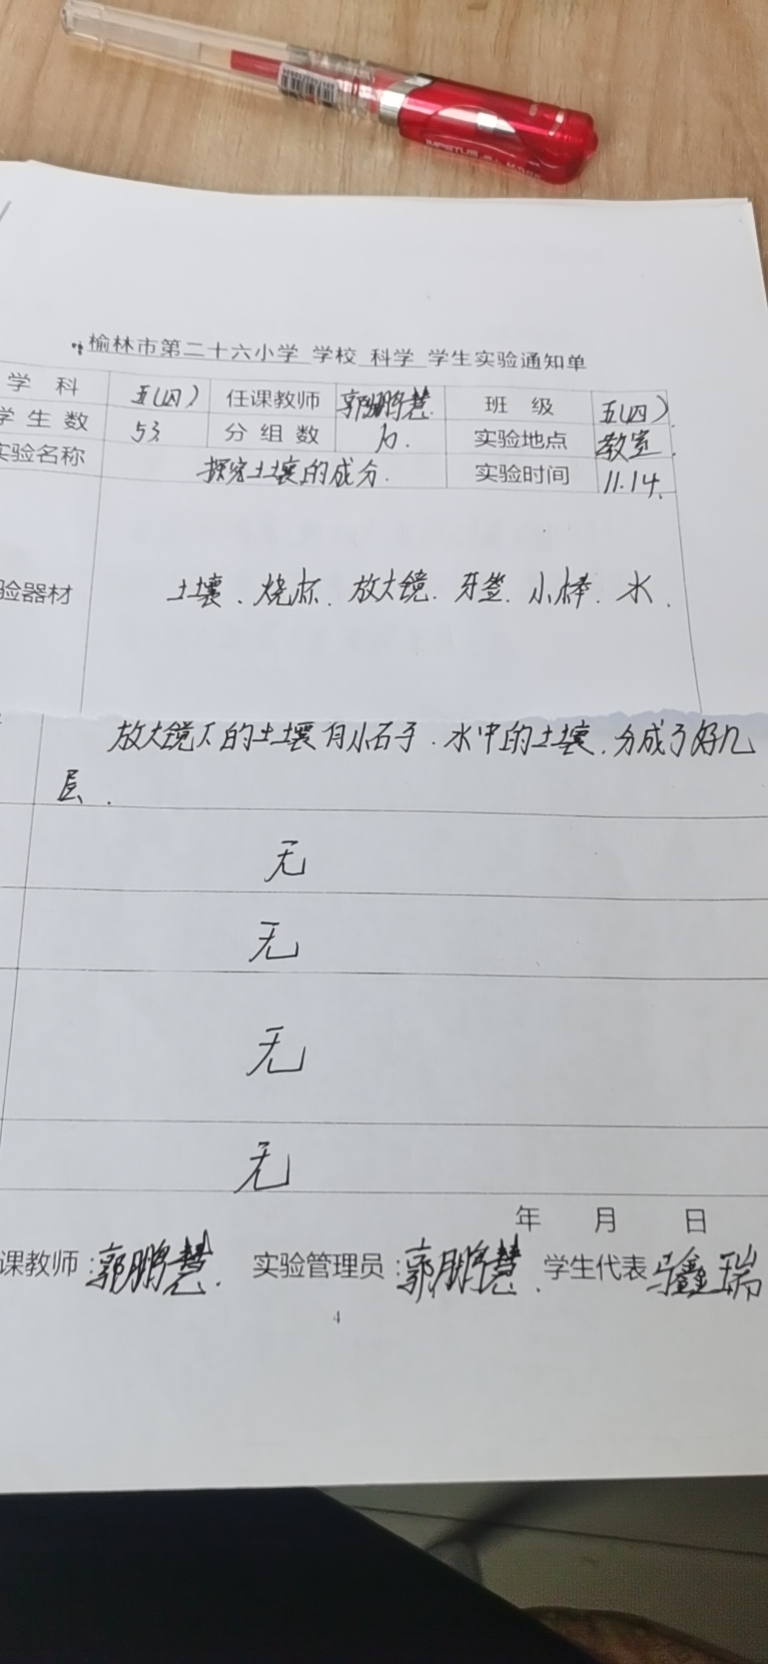 榆林市第二十六小学 学校 科学 学生实验通知单
学 科 五(四) 任课教师 郭鹏慧 班 级 五(四)
学 生 数 53 分 组 数 10 实验地点 教室
实验名称 探究土壤的成分 实验时间 11.14
验器材 土壤、烧杯、放大镜、牙签、小棒、水.
放大镜下的土壤有小石子.水中的土壤.分成了好几
层.
无
无
无
无
年 月 日
课教师:郭鹏慧. 实验管理员:郭鹏慧. 学生代表 马鑫瑞
4